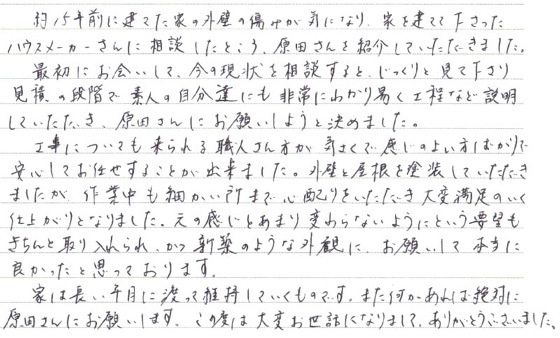 約15年前に建てた家の外壁の傷みが気になり、家を建てて下さった
ハウスメーカーさんに相談したところ、原田さんを紹介していただきました。
最初にお会いして、今の現状を相談すると、じっくりと見て下さり
見積の段階で素人の自分達にも非常にわかり易く工程など説明
していただき、原田さんにお願いしようと決めました。
工事についても来られる職人さん方が気さくで感じのよい方ばかりで
安心してお任せすることが出来ました。外壁と屋根を塗装していただき
ましたが、作業中も細かい所まで心配りをいただき大変満足のいく
仕上がりとなりました。元の感じとあまり変わらないようにという要望も
きちんと取り入れられ、かつ新築のような外観に、お願いして本当に
良かったと思っております。
家は長い年月に渡って維持していくものです。また何かあれば絶対に
原田さんにお願いします。この度は大変お世話になりまして、ありがとうございました。